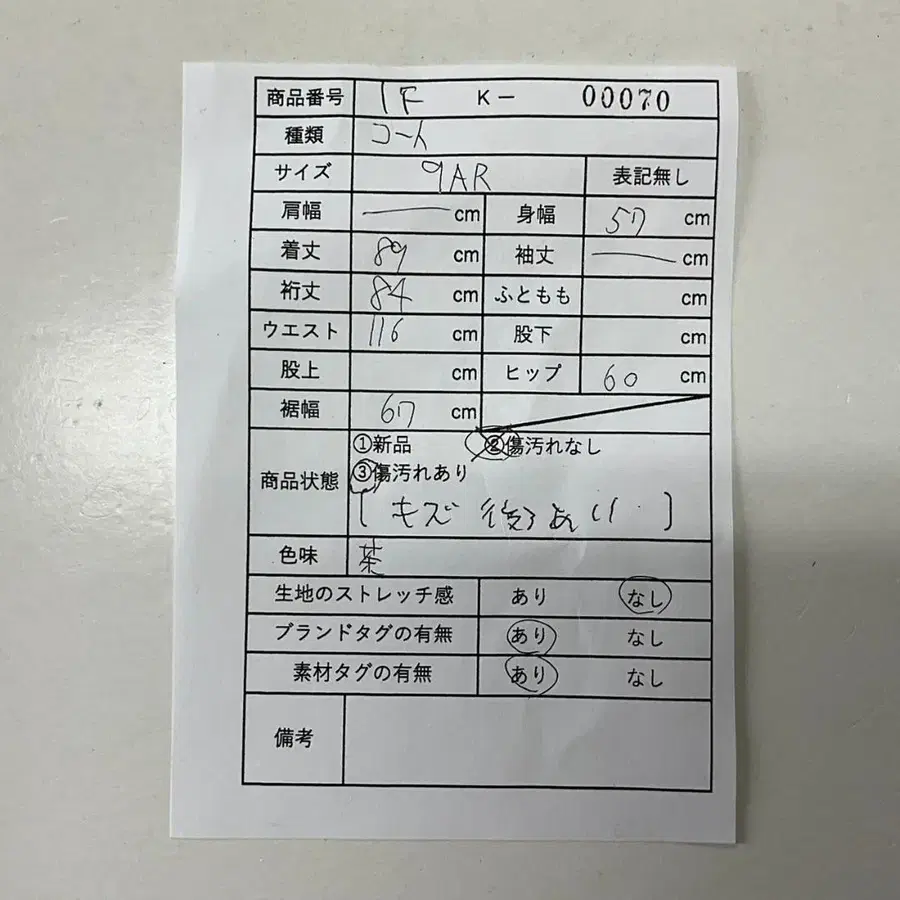 商品番号 1F K- 00070
種類 コート
サイズ 9AR 表記無し
肩幅 — cm 身幅 57 cm
着丈 89 cm 袖丈 — cm
裄丈 84 cm ふともも cm
ウエスト 116 cm 股下 cm
股上 cm ヒップ 60 cm
裾幅 67 cm
商品状態 ①新品 ②傷汚れなし
③傷汚れあり
[キズ 後ろあり]
色味 茶
生地のストレッチ感 あり なし
ブランドタグの有無 あり なし
素材タグの有無 あり なし
備考